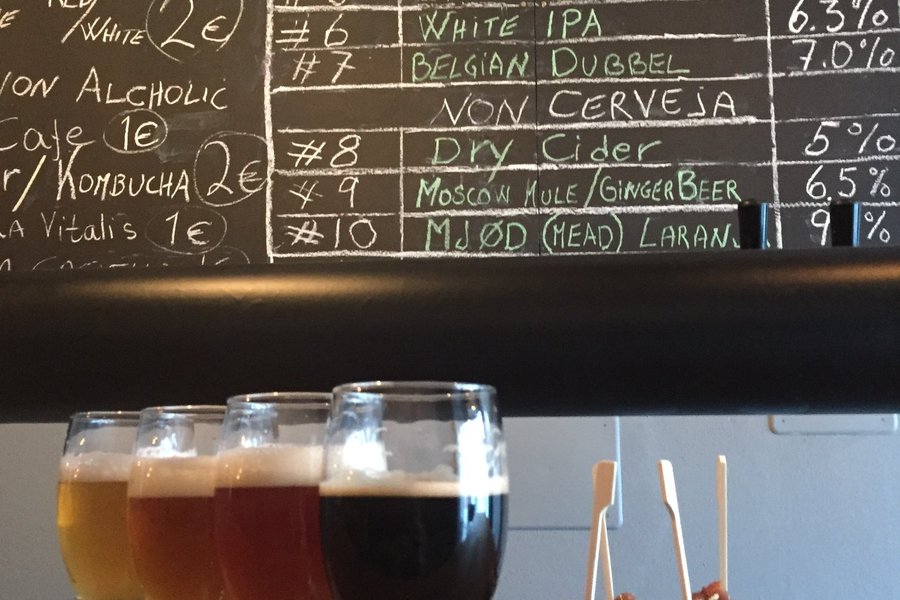 RED
/WHITE 2€
NON ALCHOLIC
Cafe 1€
r/KOMBUCHA 2€
A Vitalis 1€
#6 WHITE IPA 6.3%
#7 BELGIAN DUBBEL 7.0%
NON CERVEJA
#8 Dry Cider 5%
#9 MOSCOW MULE/GINGER BEER 6.5%
#10 MJØD (MEAD) LARAN 9 %